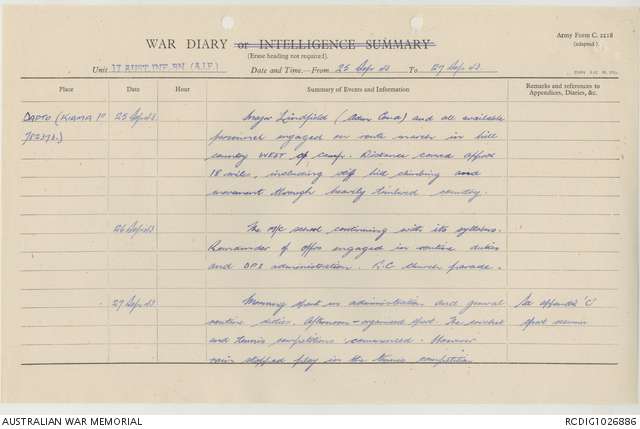 Army Form C. 2118
(adapted).
WAR DIARY or INTELLIGENCE SUMMARY
(Erase heading not required).
Unit 17 AUST. INF. BN (A.I.F.) Date and Time.—From 25 Sep 43 To 27 Sep 43.
Place Date Hour Summary of Events and Information Remarks and references to
Appendices, Diaries, &c.
DAPTO (KIAMA 1" 25 Sep 43. Major Lindfield (Adm Comd) and all available
personnel engaged in route march in hill
country WEST of camp. Distance covered approx
18 miles, including stiff hill climbing and
movement through heavily timbered country.
26 Sep 43 The M/C school continuing with its syllabus.
Remainder of offrs engaged in routine duties
and administration. R.C church parade.
27 Sep 43 Morning spent in administration and general See appendix 'C'
routine duties. Afternoon - organised sport. The cricket sport
and tennis competitions commenced. However
rain stopped play in the tennis competition
AUSTRALIAN WAR MEMORIAL RCDIG1026886